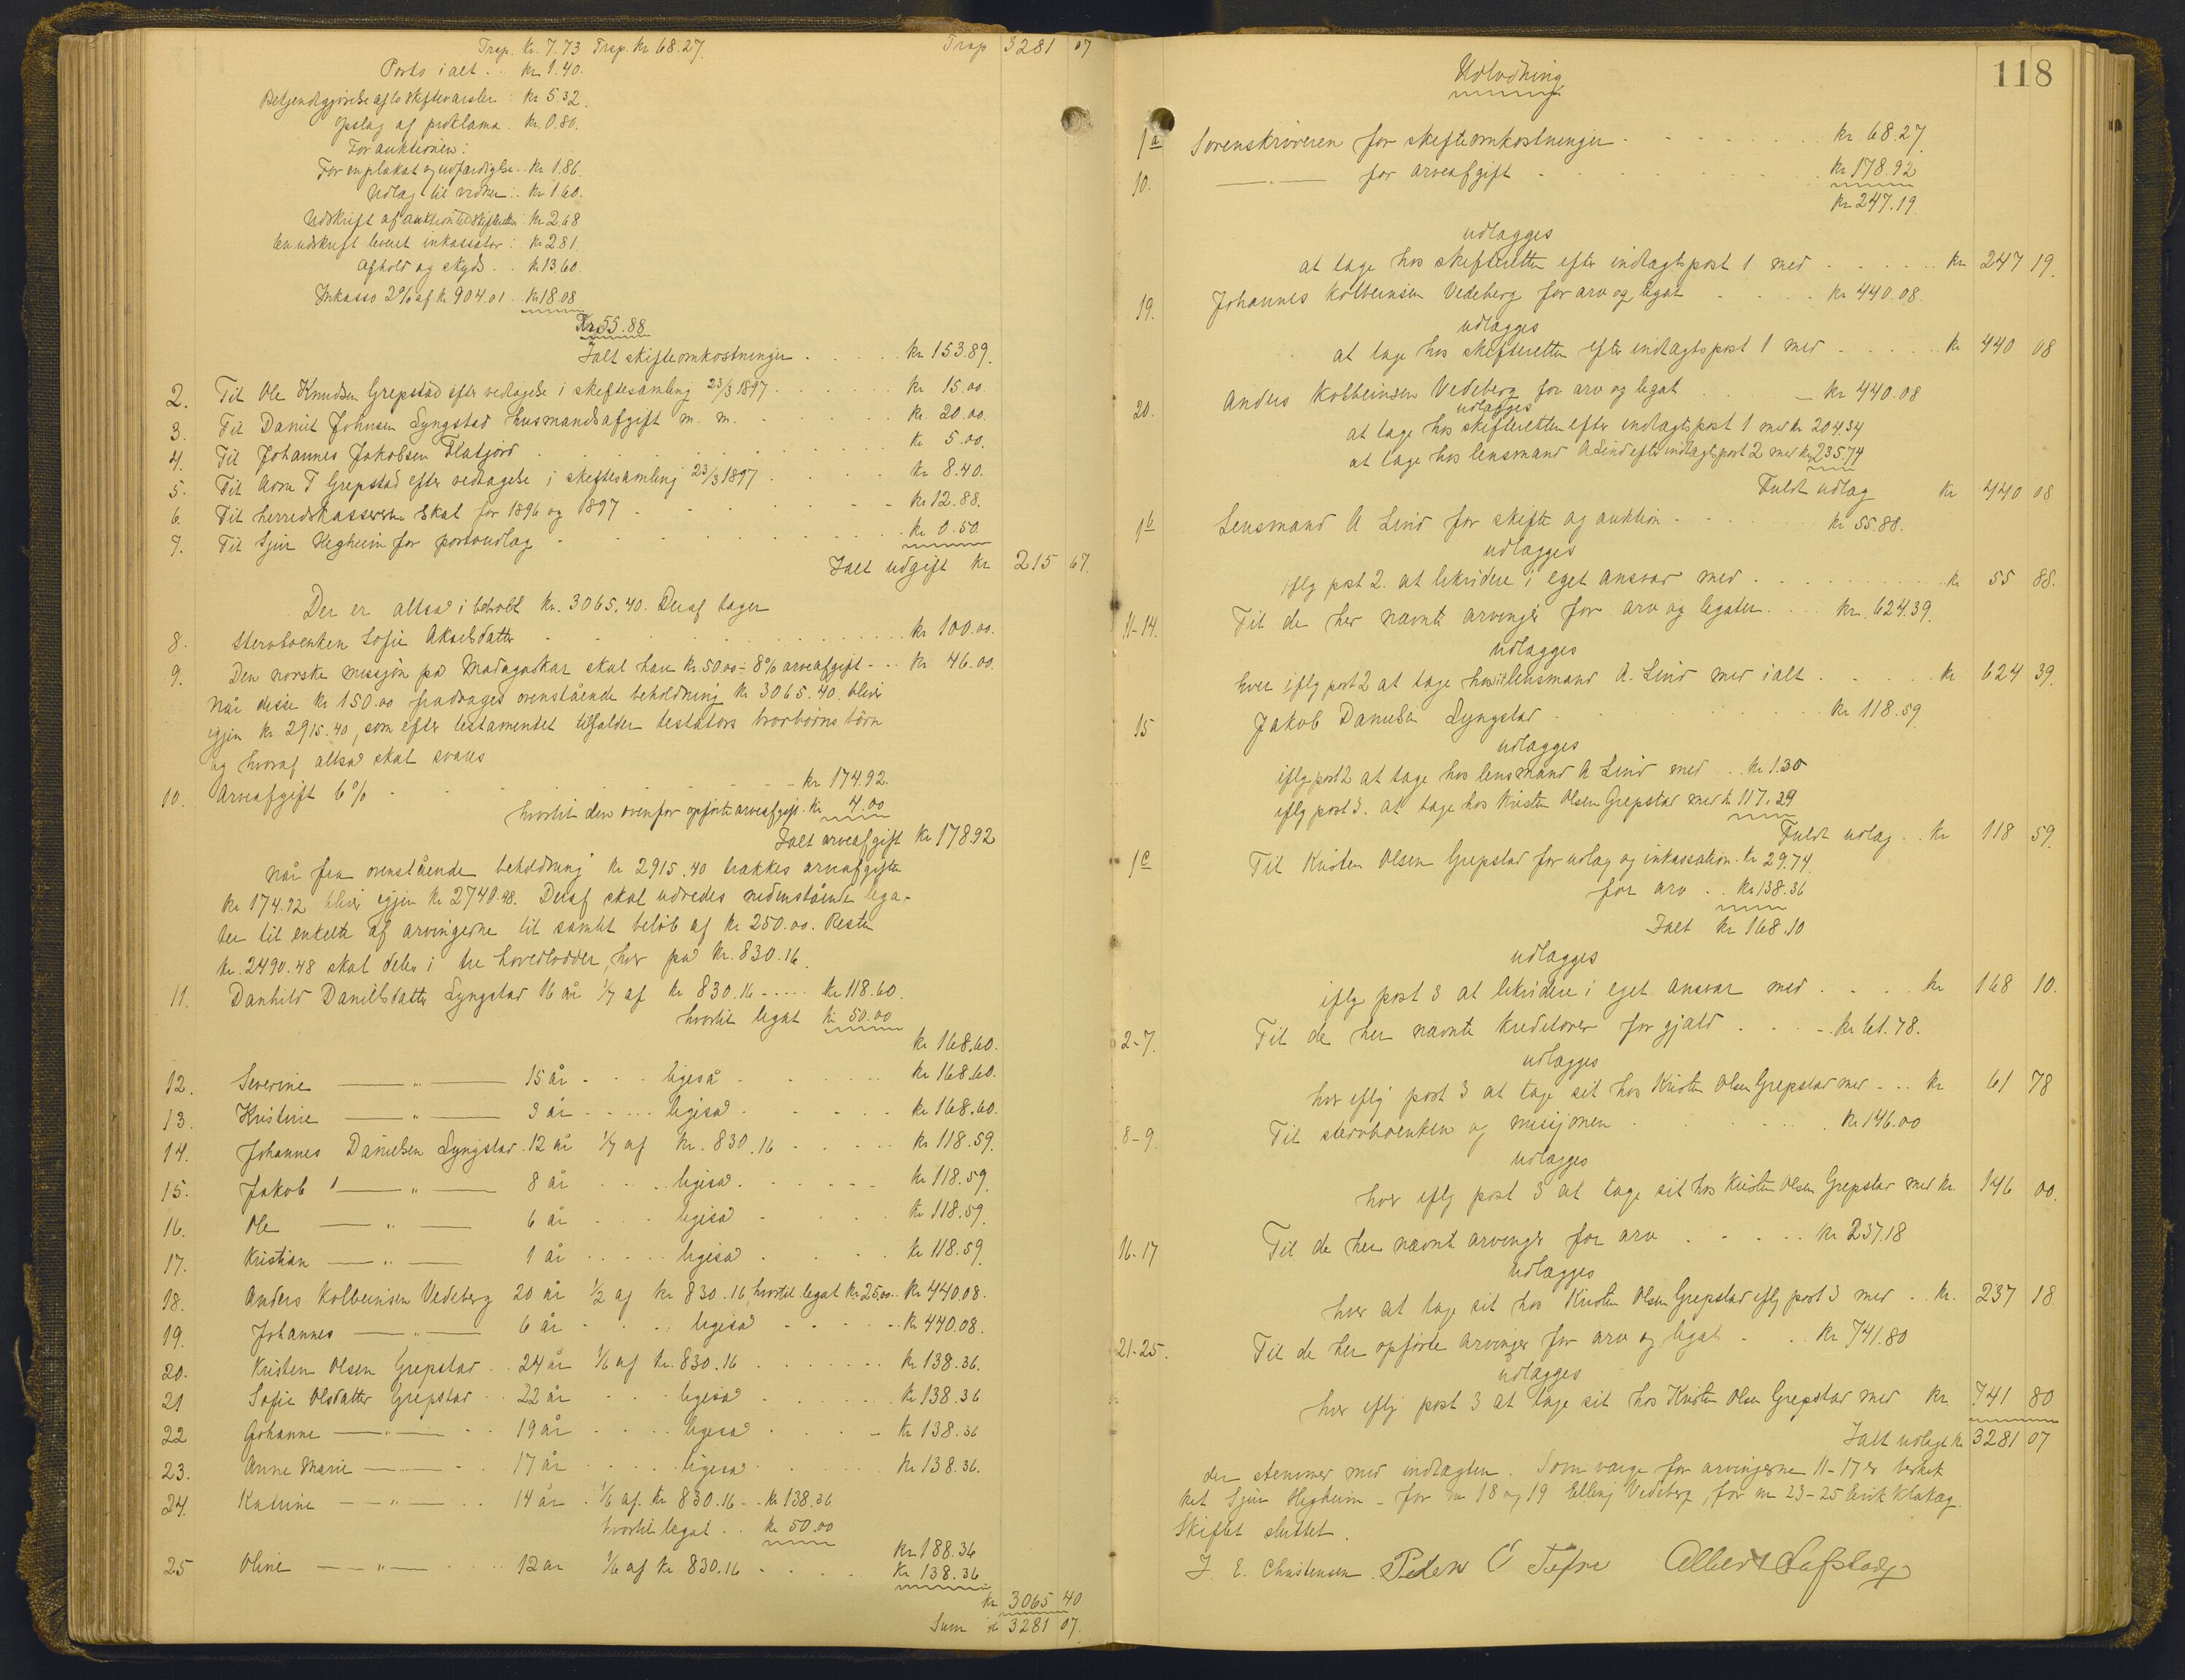 Trsp. kr. 7.73 Trsp. kr 68.27. Trsp 3281 07
Porto ialt .. kr 1.40.
Betjendtgjørelse af to skiftevarsler : kr 5.32.
Opslag af proklama . kr. 0.80.
For auktionen:
For en plakat og udfærdigelse .. kr 1.86.
Udlæg til vidner .. kr 1.60.
Udskrift af auktion til skifteretten kr 2.68
En udskrift leveret inkassator : kr 2.81.
Afhold og skyds .. kr 13.60.
Inkasso 2% af kr 904.01 . kr 18.08
Kr. 55.88
Ialt skifteomkostninger . . . . kr 153.89.
2. Til Ole Knudsen Grepstad efter vedtagelse i skiftesamling 23/3 1897 . . . . kr 15.00.
3. Til Daniel Johnsen Lyngstad husmandsafgift m. m. . . . kr. 20.00.
4. Til Johannes Jakobsen Flatjord . . . . kr 5.00.
5. Til Arne T Grepstad efter vedtagelse i skiftesamling 23/3 1897 . . . . kr 8.40.
6. Til herredskassereren skat for 1896 og 1897 - - - - kr 12.88.
7. Til Sjur Hegheim for portoudlæg - . . . . kr 0.50.
Ialt udgift kr 215 67.
Der er altså i behold kr. 3065.40. Deraf tager
8. Stervboenken Sofie Akselsdatter . . . . kr 100.00.
9. Den norske missjon på Madagaskar skal have kr. 50.00 ÷ 8% arveafgift - .. kr 46.00.
Når disse kr 150.00 fradrages ovenstående beholdning kr 3065.40. bliver
igjen kr. 2915.40, som efter testamentet tilfalder testators brorbørns børn
og hvoraf altså skal svares
10. Arveafgift 6% - - - - kr 174.92.
hvortil den ovenfor opførte arveafgift kr 4.00
Ialt arveafgift kr 178.92
Når fra ovenstående beholdning kr 2915.40 trækkes arveafgiften
kr 174.92 bliver igjen kr 2740.48. Deraf skal udredes nedenstående lega-
ter til enkelte af arvingerne til samlet beløb af kr 250.00. Resten
kr. 2490.48 skal deles i tre hovedlodder, hver på kr. 830.16.
11. Danhild Danielsdatter Lyngstad 16 år 1/7 af kr 830.16 ..... kr 118.60.
hvortil legat kr 50.00
kr 168.60.
12. Severine —— „ —— 15 år - . . ligeså . . . . kr 168.60.
13. Kristine —— „ —— 3 år . . . . ligeså . . . . kr 168.60.
14. Johannes Danielsen Lyngstad 12 år 1/7 af kr. 830.16 . . . . kr 118.59.
15. Jakob —— „ —— 8 år . . . ligeså . . . . kr 118.59.
16. Ole —— „ —— 6 år . . . ligeså . . . . kr 118.59.
17. Kristian —— „ —— 1 år . . . . ligeså . . . . kr 118.59.
18. Anders Kolbeinsen Vedeberg 20 år 1/2 af kr 830.16, hvortil legat kr 25.00 .. kr 440.08.
19. Johannes —— „ —— 6 år . . . ligeså - - - - kr 440.08.
20. Kristen Olsen Grepstad .. 24 år 1/6 af kr. 830.16 . . . . kr 138.36.
21 Sofie Olsdatter Grepstad .. 22 år . . . ligeså . . . . kr 138.36
22 Johanne —— „ —— .. 19 år . . . ligeså . . . - kr 138.36
23. Anne Marie —— „ —— . 17 år . . . . ligeså . . . . kr 138.36.
24. Katrine —— „ —— .. 14 år . 1/6 af kr 830.16 - . kr 138.36
hvortil legat .. kr 50.00
kr 188.36
25 Oline —— „ —— . . . 12 år 1/6 af kr 830.16 . . . . kr 138.36
kr 3065 40
Sum kr 3281 07.
118
Udlodning
1a Sorenskriveren for skifteomkostninger . - - - - kr 68.27.
10. —— „ —— for arveafgift - . . . . kr 178.92
kr 247.19
udlægges
at tage hos skifteretten efter indtægtspost 1 med . . . . kr 247 19.
19. Johannes Kolbeinsen Vedeberg for arv og legat . . . . kr 440.08.
udlægges
at tage hos skifteretten efter indtægtspost 1 med . . . . kr 440 08
20. Anders Kolbeinsen Vedeberg for arv og legat . . - kr 440.08
udlægges
at tage hos skifteretten efter indtægtspost 1 med kr 204.34
at tage hos lensmand A Lind efter indtægtspost 2 med kr 235.74
Fuldt udlæg kr 440 08
1b Lensmand A Lind for skifte og auktion - . . . kr 55.88.
udlægges
iflg post 2. at likvidere i eget ansvar med . . . . kr 55 88.
11-14. Til de her nævnte arvinger for arv og legater . . . . kr. 624.39.
udlægges
hver iflg post 2 at tage hos lensmand A. Lind med ialt . . . . kr 624 39.
15 Jakob Danielsen Lyngstad . . . . kr 118.59.
udlægges
iflg post 2 at tage hos lensmand A Lind med . . kr 1.30
iflg post 3. at tage hos Kristen Olsen Grepstad med kr 117.29
Fuldt udlæg .. kr 118 59.
1c Til Kristen Olsen Grepstad for udlæg og inkassation . kr 29.74.
for arv . . kr 138.36
Ialt kr 168.10
udlægges
iflg post 3 at likvidere i eget ansvar med . . . . kr 168 10.
2-7. Til de her nævnte kreditorer for gjæld . . . - kr 61.78.
udlægges
hver iflg post 3 at tage sit hos Kristen Olsen Grepstad med - .. kr 61 78
8-9. Til stervboenken og missjonen . . . . kr 146.00
udlægges
hver iflg post 3 at tage sit hos Kristen Olsen Grepstad med kr. 146 00.
16-17 Til de her nævnte arvinger for arv . . . . kr 237.18
udlægges
hver at tage sit hos Kristen Olsen Grepstad iflg post 3 med . . kr. 237 18
21-25. Til de her opførte arvinger for arv og legat - . . kr. 741.80
udlægges
hver iflg post 3 at tage sit hos Kristen Olsen Grepstad med kr. 741 80
Ialt udlagt kr 3281 07
der stemmer med indtægten. Som værge for arvingerne 11-17 er
Sjur Hegheim - for nr 18 og 19 Elling Vedeberg, for nr 23-25 Erik Klakæg.
Skiftet sluttet.
J. E. Christensen. Peder O Tefre Albert